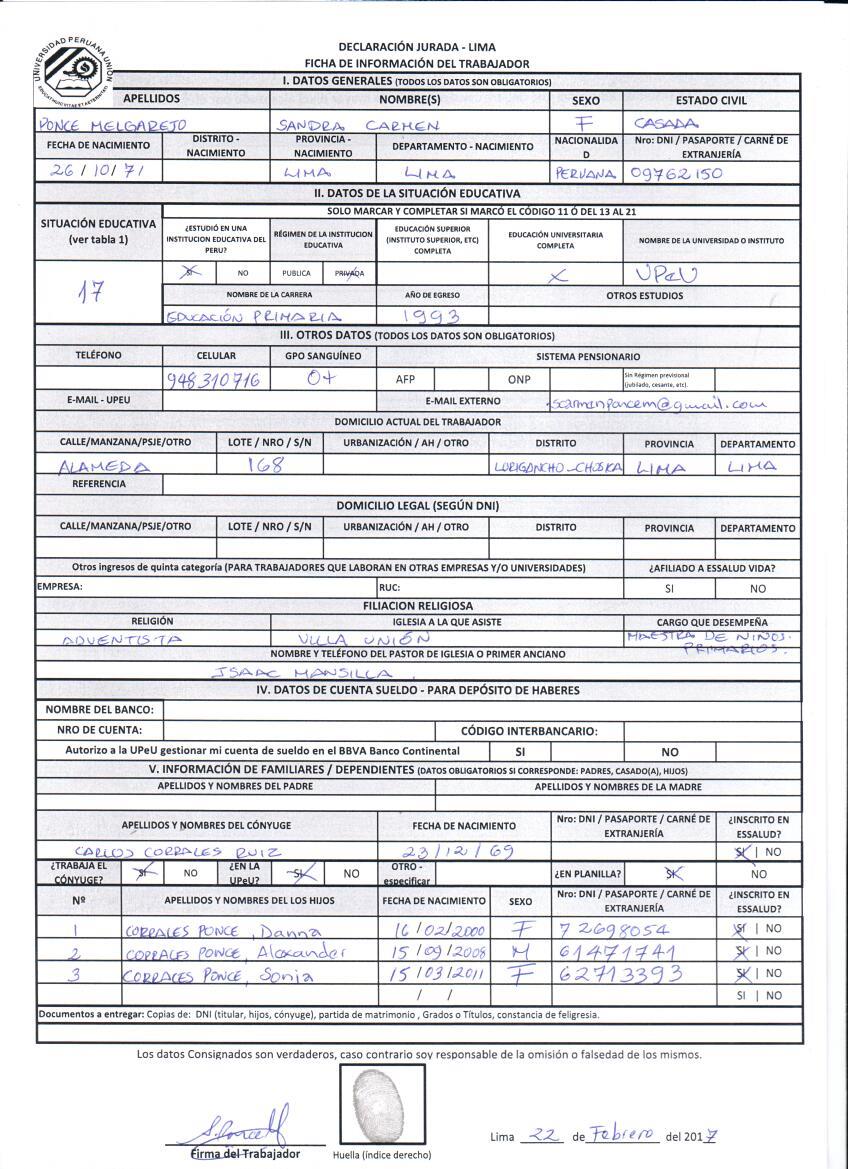 UNIVERSIDAD PERUANA UNION
DECLARACIÓN JURADA - LIMA
FICHA DE INFORMACIÓN DEL TRABAJADOR
I. DATOS GENERALES (TODOS LOS DATOS SON OBLIGATORIOS)
APELLIDOS NOMBRE(S) SEXO ESTADO CIVIL
PONCE MELGAREJO SANDRA CARMEN F CASADA
FECHA DE NACIMIENTO DISTRITO - NACIMIENTO PROVINCIA - NACIMIENTO DEPARTAMENTO - NACIMIENTO NACIONALIDAD Nro: DNI / PASAPORTE / CARNÉ DE EXTRANJERÍA
26/10/71 LIMA LIMA PERUANA 09762150
II. DATOS DE LA SITUACIÓN EDUCATIVA
SOLO MARCAR Y COMPLETAR SI MARCÓ EL CÓDIGO 11 Ó DEL 13 AL 21
SITUACIÓN EDUCATIVA (ver tabla 1) ¿ESTUDIÓ EN UNA INSTITUCION EDUCATIVA DEL PERU? RÉGIMEN DE LA INSTITUCION EDUCATIVA EDUCACIÓN SUPERIOR (INSTITUTO SUPERIOR, ETC) COMPLETA EDUCACIÓN UNIVERSITARIA COMPLETA NOMBRE DE LA UNIVERSIDAD O INSTITUTO
17 SI NO PUBLICA PRIVADA X UPeU
NOMBRE DE LA CARRERA AÑO DE EGRESO OTROS ESTUDIOS
EDUCACIÓN PRIMARIA 1993
III. OTROS DATOS (TODOS LOS DATOS SON OBLIGATORIOS)
TELÉFONO CELULAR GPO SANGUÍNEO SISTEMA PENSIONARIO
948310716 O+ AFP ONP Sin Régimen previsional (jubilado, cesante, etc).
E-MAIL - UPEU E-MAIL EXTERNO scarmenponcem@gmail.com
DOMICILIO ACTUAL DEL TRABAJADOR
CALLE/MANZANA/PSJE/OTRO LOTE / NRO / S/N URBANIZACIÓN / AH / OTRO DISTRITO PROVINCIA DEPARTAMENTO
ALAMEDA 168 LURIGANCHO-CHOSICA LIMA LIMA
REFERENCIA
DOMICILIO LEGAL (SEGÚN DNI)
CALLE/MANZANA/PSJE/OTRO LOTE / NRO / S/N URBANIZACIÓN / AH / OTRO DISTRITO PROVINCIA DEPARTAMENTO
Otros ingresos de quinta categoría (PARA TRABAJADORES QUE LABORAN EN OTRAS EMPRESAS Y/O UNIVERSIDADES) ¿AFILIADO A ESSALUD VIDA?
EMPRESA: RUC: SI NO
FILIACION RELIGIOSA
RELIGIÓN IGLESIA A LA QUE ASISTE CARGO QUE DESEMPEÑA
ADVENTISTA VILLA UNIÓN MAESTRA DE NIÑOS. PRIMARIOS.
NOMBRE Y TELÉFONO DEL PASTOR DE IGLESIA O PRIMER ANCIANO
ISAAC MANSILLA.
IV. DATOS DE CUENTA SUELDO - PARA DEPÓSITO DE HABERES
NOMBRE DEL BANCO:
NRO DE CUENTA: CÓDIGO INTERBANCARIO:
Autorizo a la UPeU gestionar mi cuenta de sueldo en el BBVA Banco Continental SI NO
V. INFORMACIÓN DE FAMILIARES / DEPENDIENTES (DATOS OBLIGATORIOS SI CORRESPONDE: PADRES, CASADO(A), HIJOS)
APELLIDOS Y NOMBRES DEL PADRE APELLIDOS Y NOMBRES DE LA MADRE
APELLIDOS Y NOMBRES DEL CÓNYUGE FECHA DE NACIMIENTO Nro: DNI / PASAPORTE / CARNÉ DE EXTRANJERÍA ¿INSCRITO EN ESSALUD?
CARLOS CORRALES RUIZ 23/12/69 SI | NO
¿TRABAJA EL CÓNYUGE? SI NO ¿EN LA UPeU? SI NO OTRO - especificar ¿EN PLANILLA? SI NO
Nº APELLIDOS Y NOMBRES DEL LOS HIJOS FECHA DE NACIMIENTO SEXO Nro: DNI / PASAPORTE / CARNÉ DE EXTRANJERÍA ¿INSCRITO EN ESSALUD?
1 CORRALES PONCE, Danna 16/02/2000 F 72698054 SI | NO
2 CORRALES PONCE, Alexander 15/09/2008 M 61471741 SI | NO
3 CORRALES PONCE, Sonia 15/03/2011 F 62713393 SI | NO
/ / SI | NO
Documentos a entregar: Copias de: DNI (titular, hijos, cónyuge), partida de matrimonio , Grados o Títulos, constancia de feligresia.
Los datos Consignados son verdaderos, caso contrario soy responsable de la omisión o falsedad de los mismos.
Lima 22 de Febrero del 2017
Firma del Trabajador Huella (índice derecho)